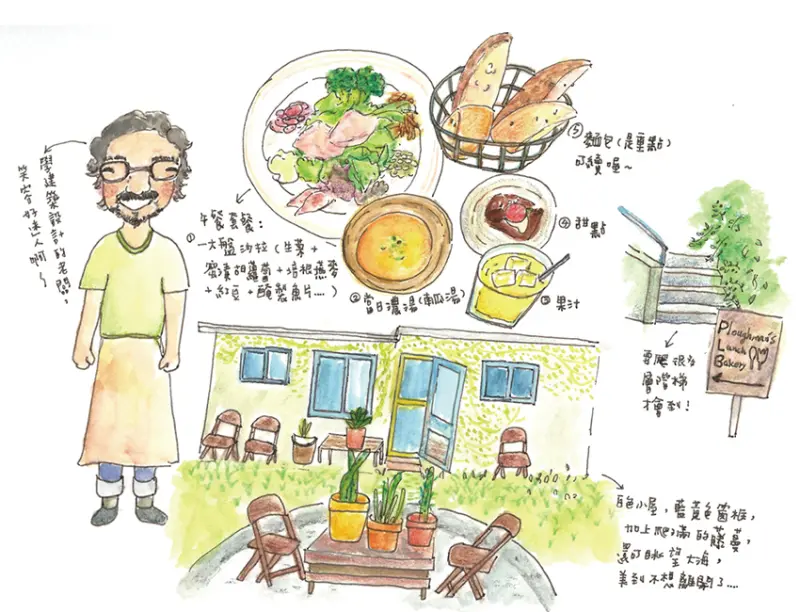 學建築設計的老闆，
笑容好迷人啊～
午餐套餐：
① 一大盤沙拉（生菜＋
蜜漬胡蘿蔔＋培根燕麥
＋紅豆＋醃製魚片....）
② 當日濃湯（南瓜湯）
③ 果汁
④ 甜點
⑤ 麵包（是重點）
可續喔～
要爬很多
層階梯
才會到！
Ploughman's
Lunch
Bakery
白色小屋，藍黃色窗框，
加上爬滿的藤蔓，
還可眺望大海，
美到不想離開了....